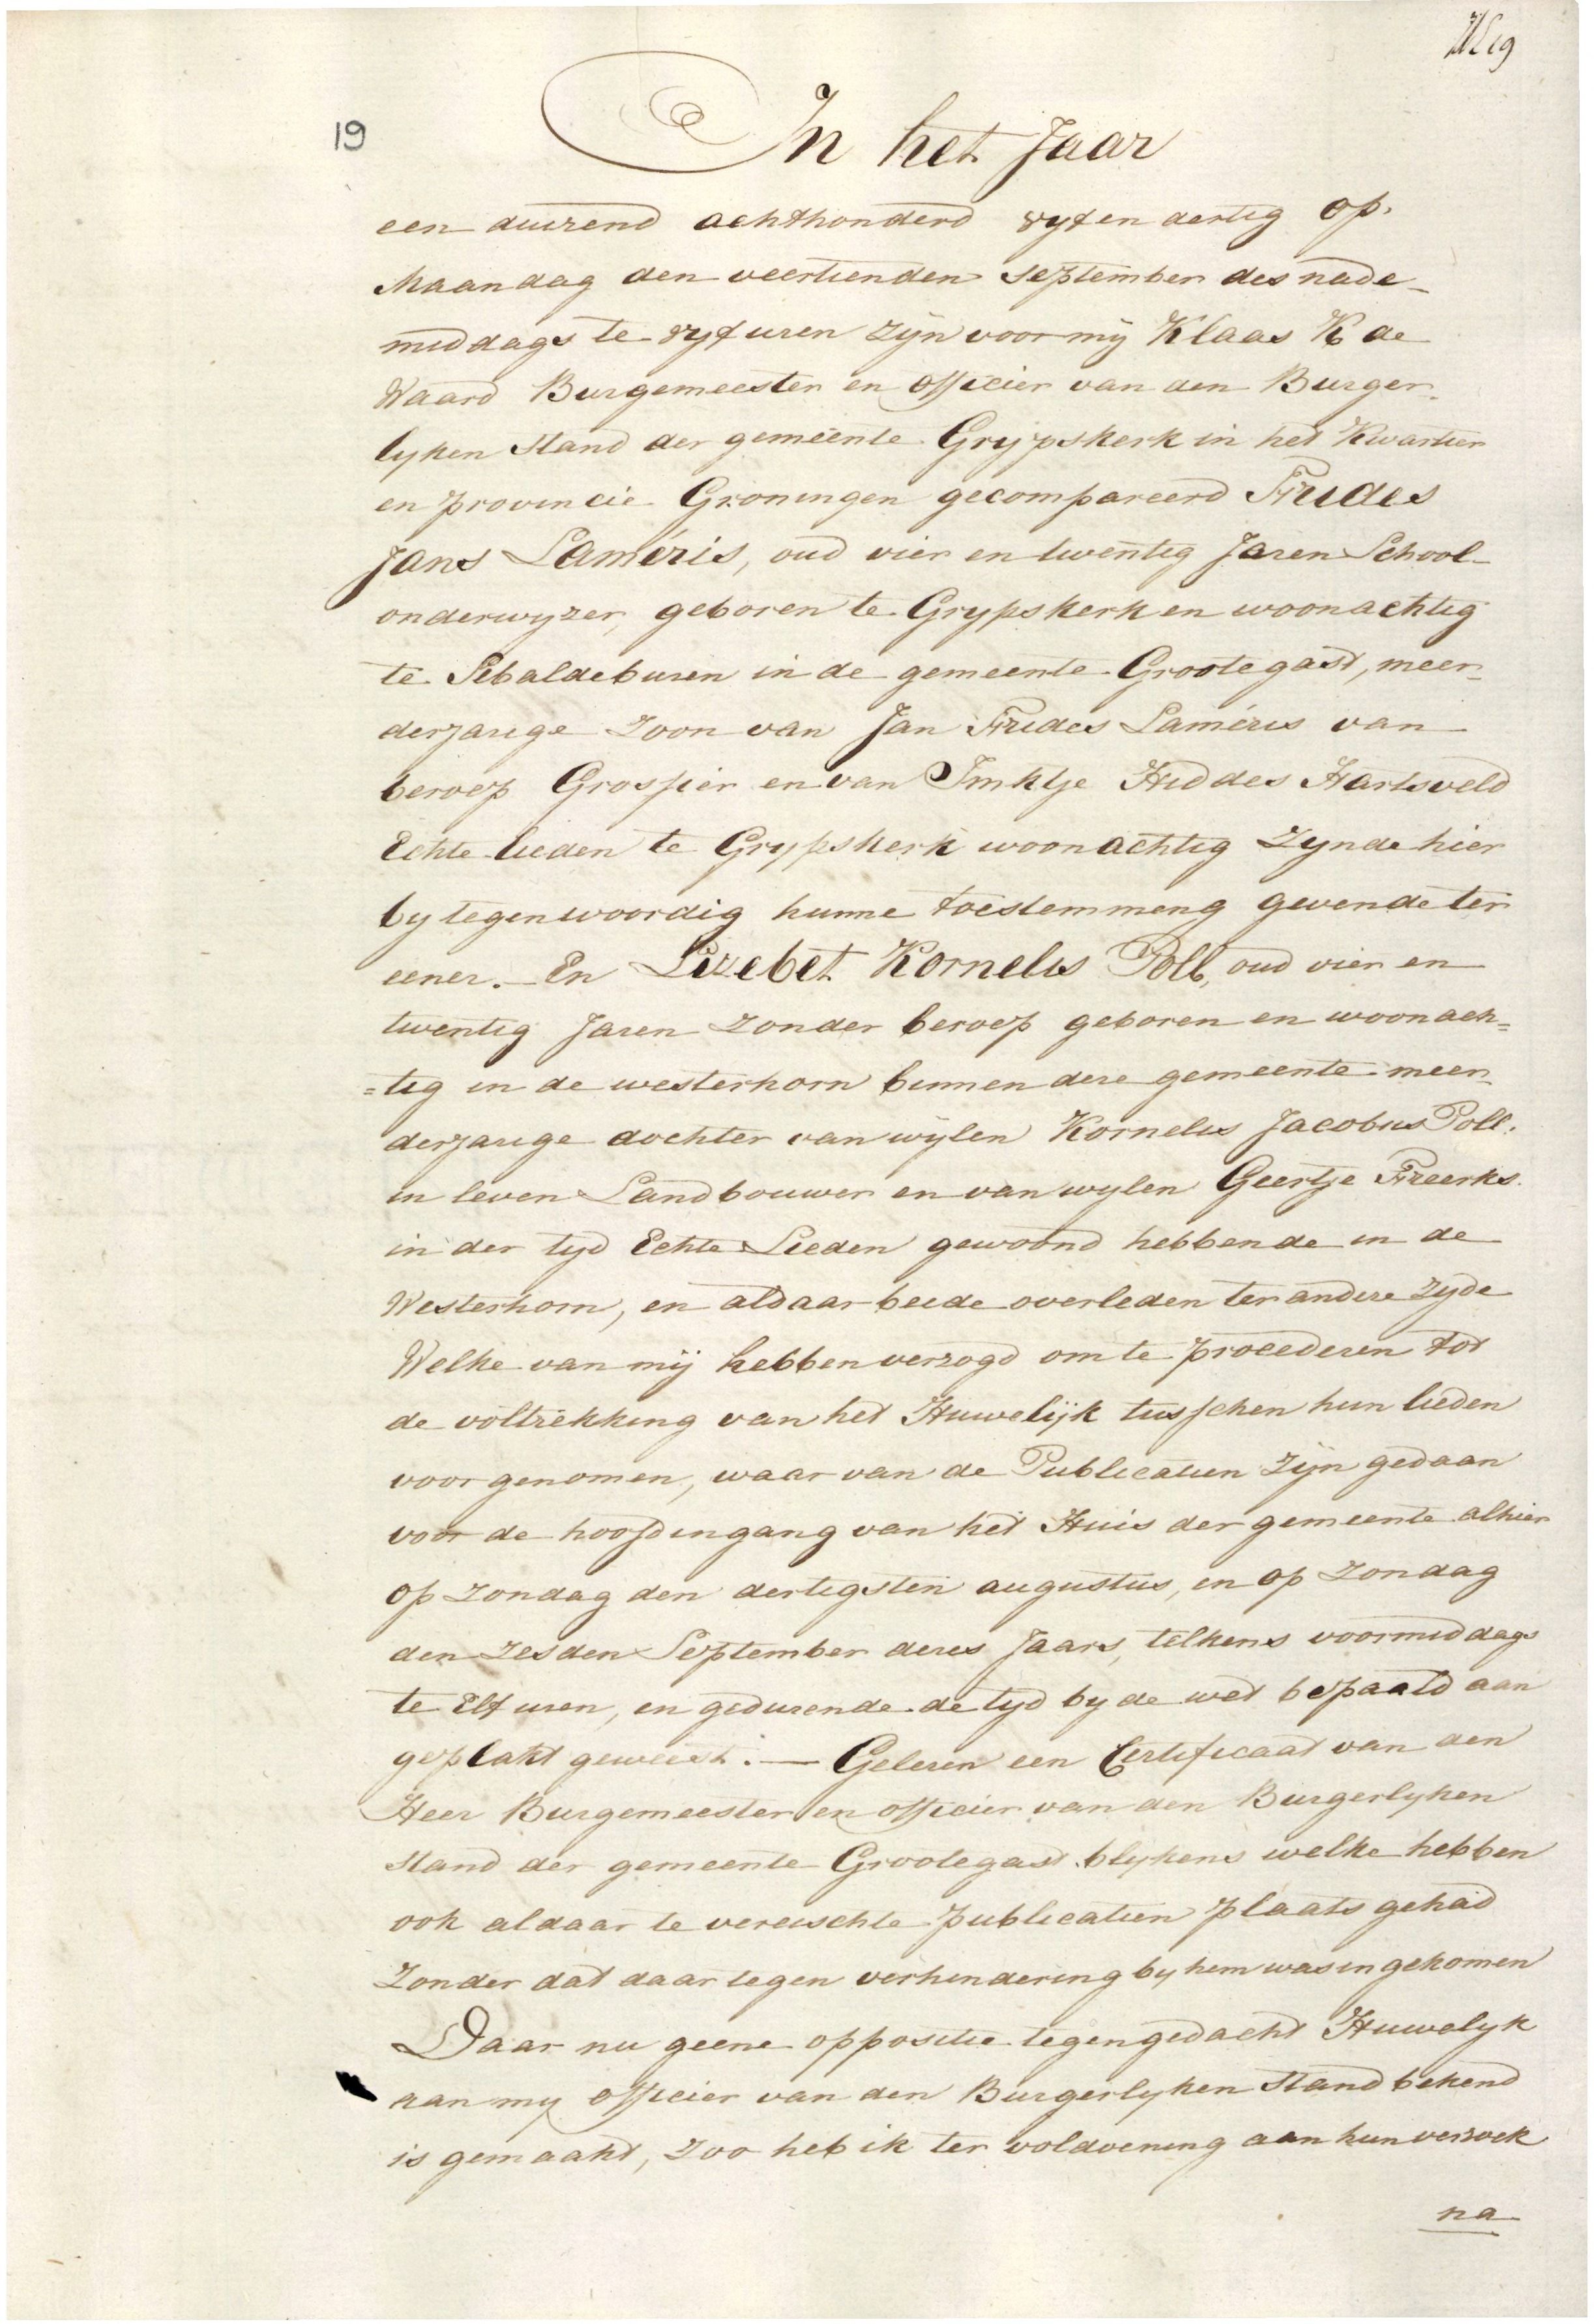 19
In het Jaar
een duizend achthonderd vyf en dertig op
Maandag den veertienden September des nade-
middags te vyf uren zijn voor mij Klaas K de
Waard Burgemeester en officier van den Burger-
lyken Stand der gemeente Grijpskerk in het Kwartier
en provincie Groningen gecompareerd Friedes
Jans Laméris, oud vier en twentig Jaren School-
onderwyzer, geboren te Grypskerk en woonachtig
te Sebaldeburen in de gemeente Grootegast, meer-
derjarige zoon van Jan Friedes Laméris van
beroep Grossier en van Imktje Hiddes Hartsveld
Echte lieden te Grypskerk woonachtig zynde hier
by tegenwoordig hunne toestemming gevende ter
eener. — En Liezebet Kornelis Poll, oud vier en
twentig Jaren zonder beroep geboren en woonach=
=tig in de westerhorn binnen deze gemeente meer-
derjarige dochter van wijlen Kornelis Jacobus Poll.
in leven Landbouwer en van wylen Geertje Freerks.
in der tyd Echte Lieden gewoond hebbende in de
Westerhorn, en aldaar beide overleden ter andere zyde
Welke van mij hebben verzogd om te proeederen tot
de voltrekking van het Huwelijk tusschen hun lieden
voorgenomen, waar van de Publicatien zijn gedaan
voor de hoofdingang van het Huis der gemeente alhier
op zondag den dertigsten augustus, en op zondag
den zesden September dezes Jaars, telkens voormiddags
te Elf uren, en gedurende de tyd by de wet bepaald aan
geplakt geweest. — Gelezen een Certificaat van den
Heer Burgemeester en officier van den Burgerlyken
stand der gemeente Grootegast blykens welke hebben
ook aldaar te vereischte publicatien plaats gehad
Zonder dat daar tegen verhindering by hem was ingekomen
Daar nu geene oppositie tegen gedacht Huwelyk
aan my officier van den Burgerlyken Stand bekend
is gemaakt, zoo heb ik ter voldoening aan hun verzoek
na